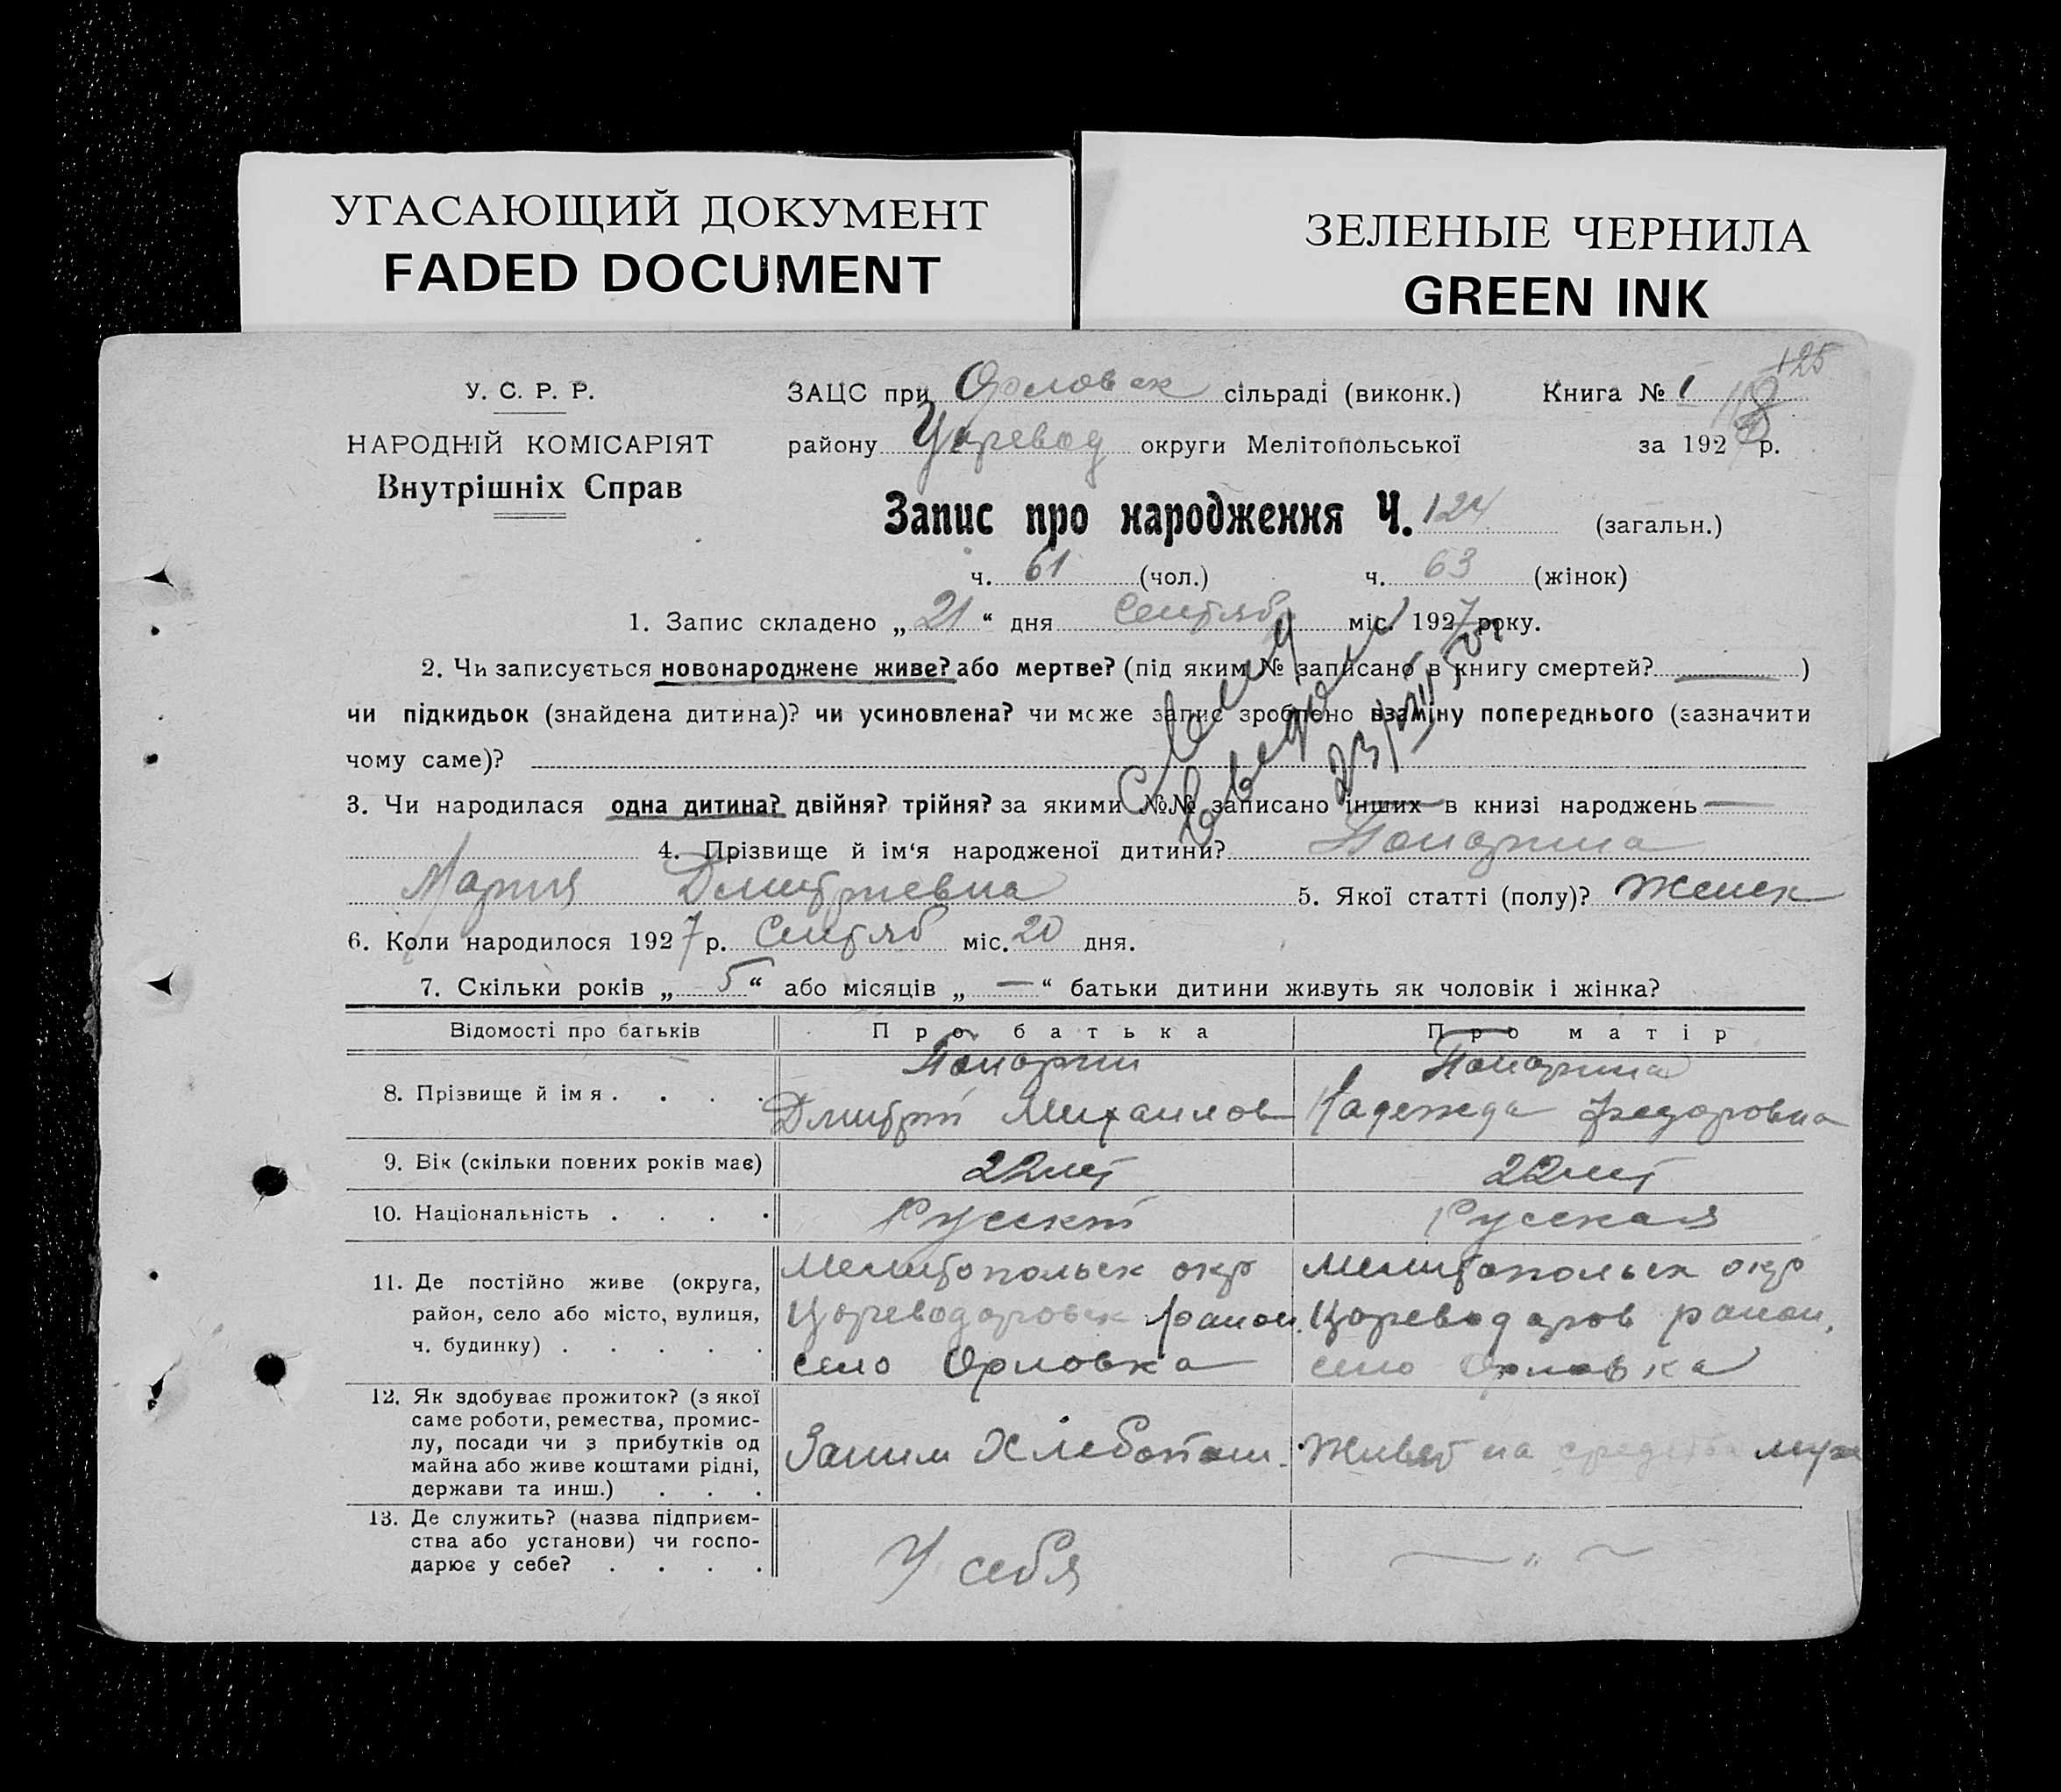 УГАСАЮЩИЙ ДОКУМЕНТ
FADED DOCUMENT
ЗЕЛЕНЫЕ ЧЕРНИЛА
GREEN INK
125
У. С. Р. Р.
НАРОДНІЙ КОМІСАРІЯТ
Внутрішніх Справ
ЗАЦС при Орловск сільраді (виконк.) Книга № 1 118
району Царевод округи Мелітопольської за 192 р.
Запис про народження Ч. 124 (загальн.)
ч. 61 (чол.) ч. 63 (жінок)
1. Запис складено „ 21 “ дня Сентяб міс. 1927 року.
2. Чи записується новонароджене живе? або мертве? (під яким № записано в книгу смертей? — )
чи підкидьок (знайдена дитина)? чи усиновлена? чи може запис зроблено взаміну попереднього (зазначити
чому саме)?
3. Чи народилася одна дитина? двійня? трійня? за якими №№ записано інших в книзі народжень —
4. Прізвище й ім‘я народженої дитини?
Мария Дмитриевна 5. Якої статті (полу)? Женск
6. Коли народилося 1927 р. Сентяб міс. 20 дня.
7. Скільки років „ 5 “ або місяців „ — “ батьки дитини живуть як чоловік і жінка?
Відомості про батьків Про батька Про матір
8. Прізвище й імя . . . .
Дмитрий Михаилов Надежда Федоровна
9. Вік (скільки повних років має) 22 лет 22 лет
10. Національність . . . . Русский Русская
11. Де постійно живе (округа, район, село або місто, вулиця, ч. будинку) . . . . .
Мелитопольск окр Мелитопольск окр
Цареводаровск район. Цареводаров район.
село Орловка село Орловка
12. Як здобуває прожиток? (з якої
саме роботи, ремества, промис-
лу, посади чи з прибутків од
майна або живе коштами рідні,
держави та инш.) . . .
Заним Хлебопаш. Живет на средства мужа
13. Де служить? (назва підприєм-
ства або установи) чи госпо-
дарює у себе? . . . .
У себя — „ —